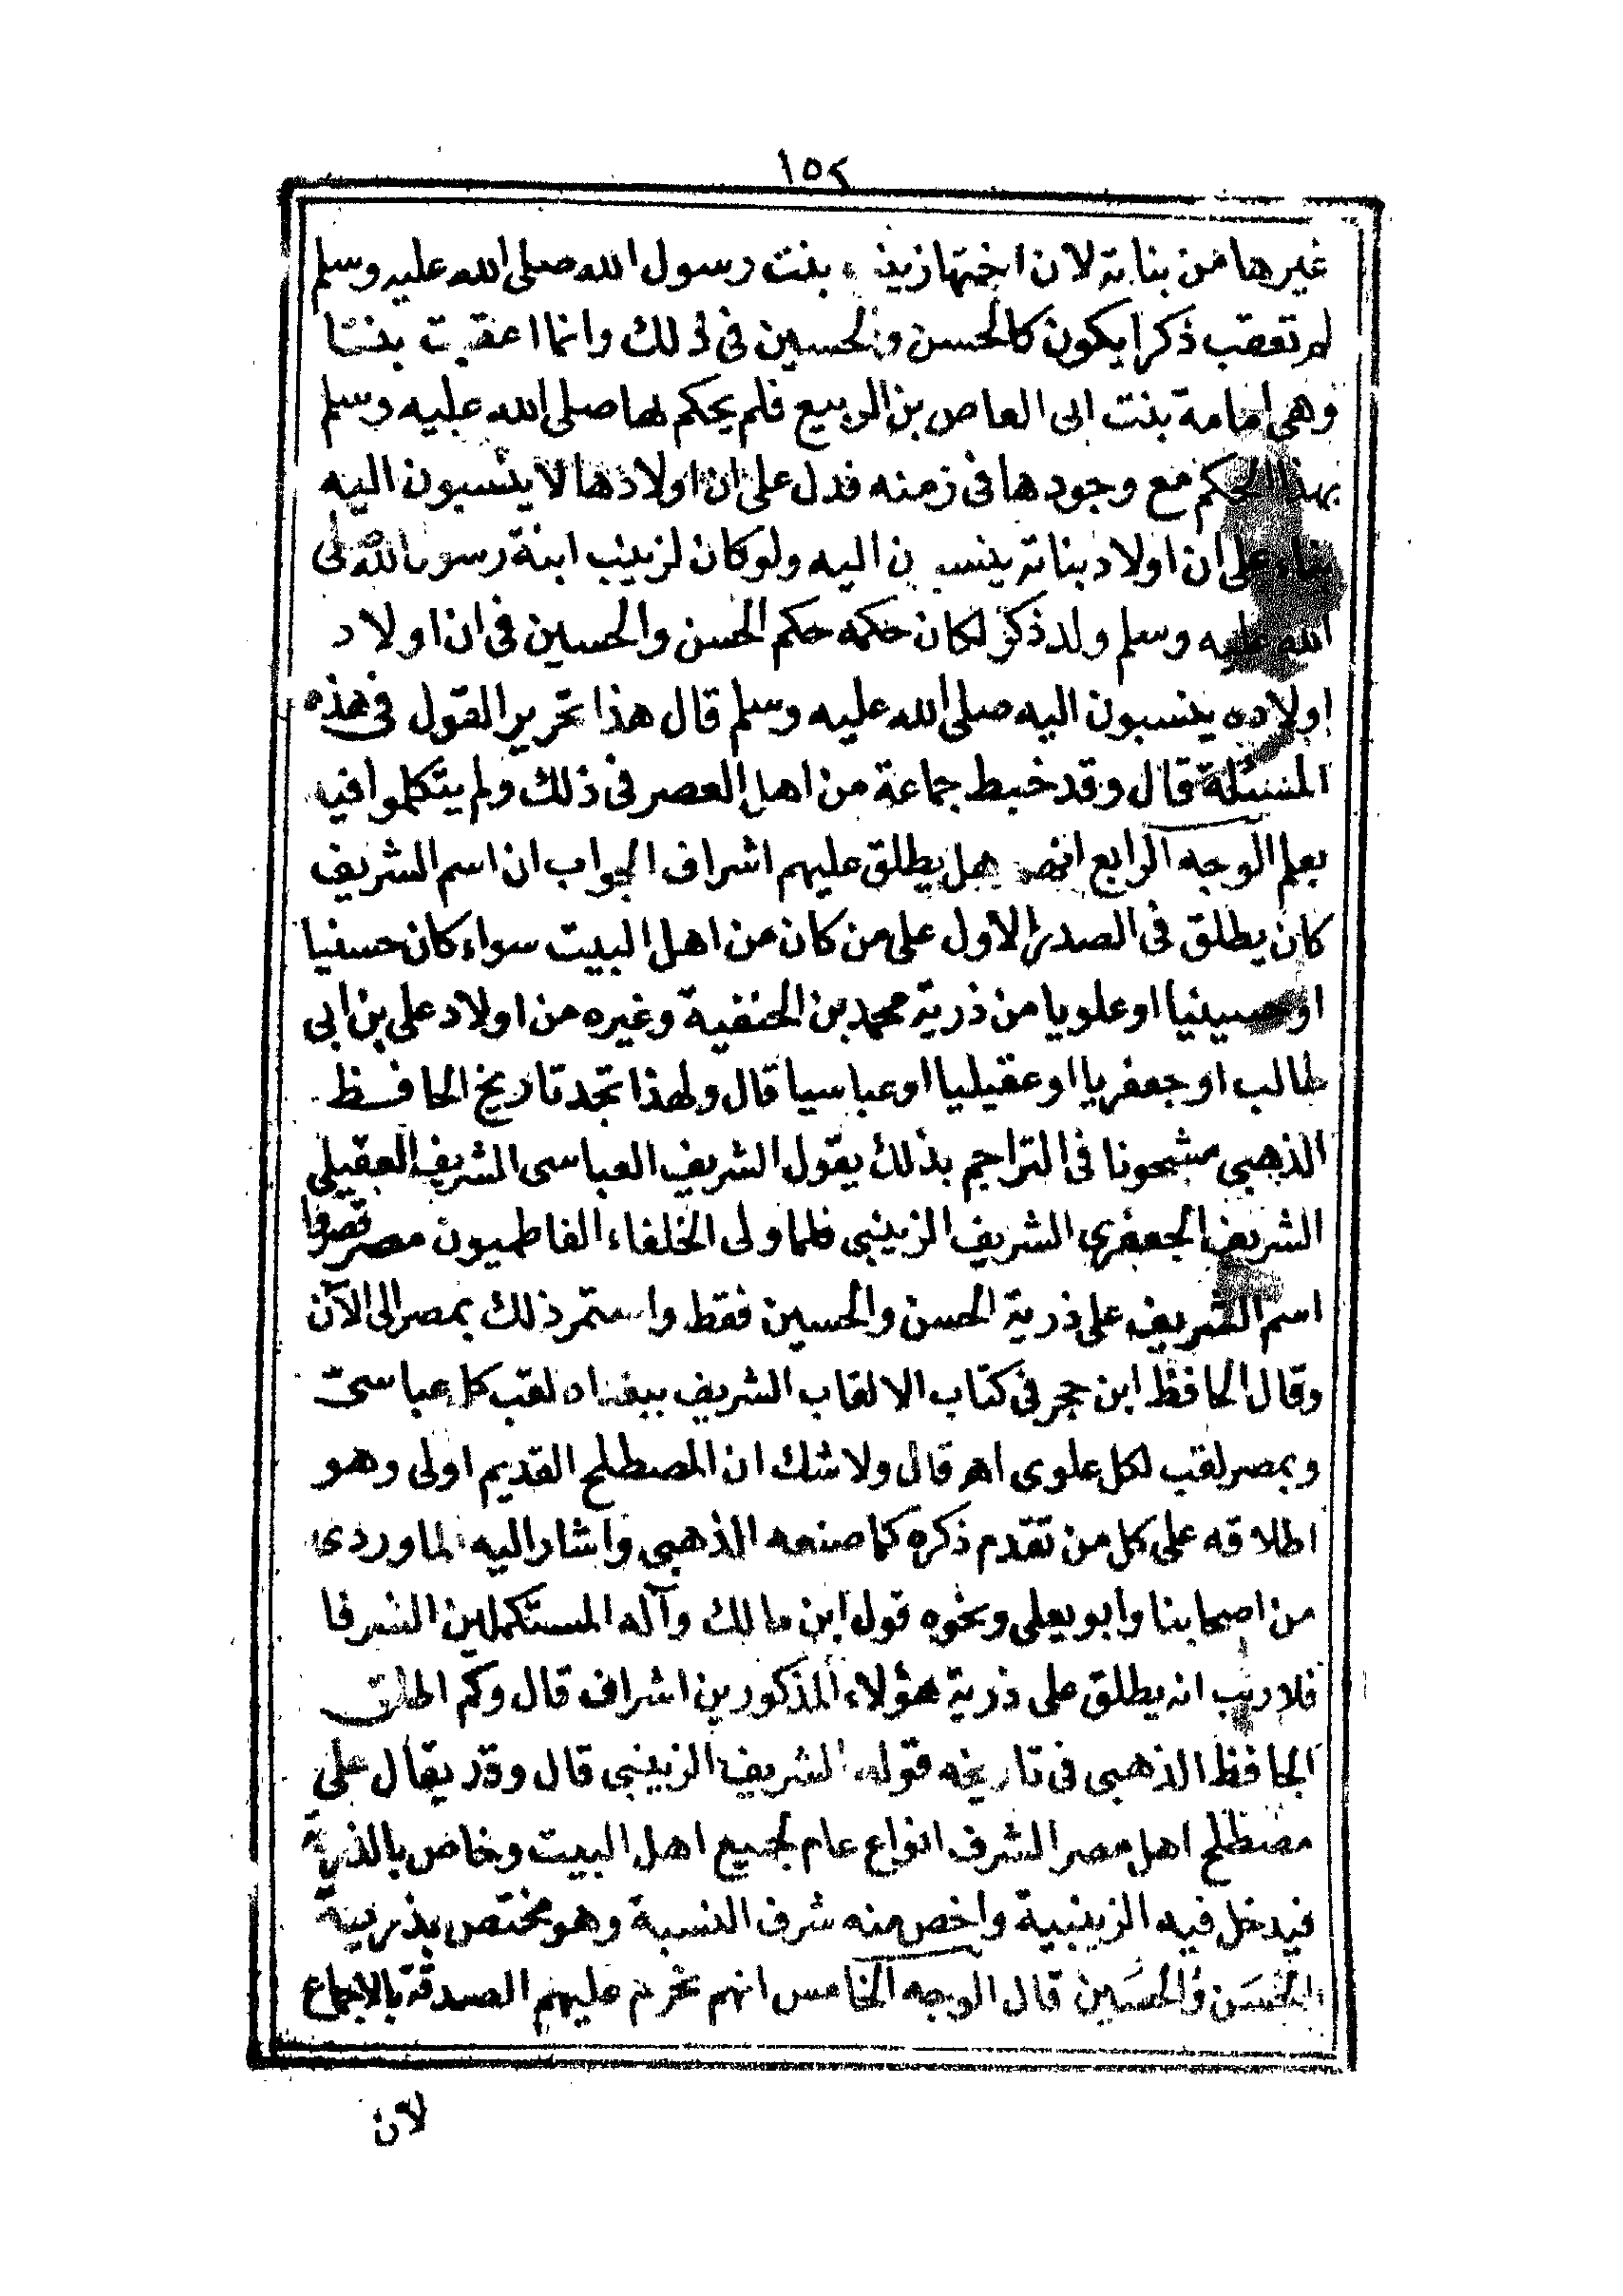 ١٥٢
غيرها من بناته لان اختها زينب بنت رسول الله صلى الله عليه وسلم
لم تعقب ذكرا يكون كالحسن والحسين فى ذلك وانما اعقبت بنتا
وهى امامة بنت ابى العاص بن الربيع فلم يحكم لها صلى الله عليه وسلم
بهذا الحكم مع وجودها فى زمنه فدل على ان اولادها لا ينسبون اليه
بناء على ان اولاد بناته ينسبون اليه ولو كان لزينب ابنة رسول الله صلى
الله عليه وسلم ولد ذكر لكان حكمه حكم الحسن والحسين فى ان اولاد
اولاده ينسبون اليه صلى الله عليه وسلم قال هذا تحرير القول فى هذه
المسئلة قال وقد خبط جماعة من اهل العصر فى ذلك ولم يتكلموا فيه
بعلم الوجه الرابع انهم هل يطلق عليهم اشراف الجواب ان اسم الشريف
كان يطلق فى الصدر الاول على من كان من اهل البيت سواء كان حسنيا
او حسينيا او علويا من ذرية محمد بن الحنفية وغيره من اولاد على بن ابى
طالب او جعفريا او عقيليا او عباسيا قال ولهذا تجد تاريخ الحافظ
الذهبى مشحونا فى التراجم بذلك يقول الشريف العباسى الشريف العقيلى
الشريف الجعفرى الشريف الزينبى فلما ولى الخلفاء الفاطميون مصر قصروا
اسم الشريف على ذرية الحسن والحسين فقط واستمر ذلك بمصر الى الآن
وقال الحافظ ابن حجر فى كتاب الالقاب الشريف ببغداد لقب كل عباسىّ
وبمصر لقب لكل علوى اهـ قال ولا شك ان المصطلح القديم اولى وهو
اطلاقه على كل من تقدم ذكره كما صنعه الذهبى واشار اليه الماوردى
من اصحابنا وابو يعلى ونحوه قول ابن مالك وآله المستكملين الشرفا
فلا ريب انه يطلق على ذرية هؤلاء المذكورين اشراف قال وكم اطلق
الحافظ الذهبى فى تاريخه قوله الشريف الزينبى قال وقد يقال على
مصطلح اهل مصر الشرف انواع عام لجميع اهل البيت وخاص بالذرية
فيدخل فيه الزينبية واخص منه شرف النسبة وهو مختص بذرية
الحسن والحسين قال الوجه الخامس انهم تحرم عليهم الصدقة بالاجماع
لان